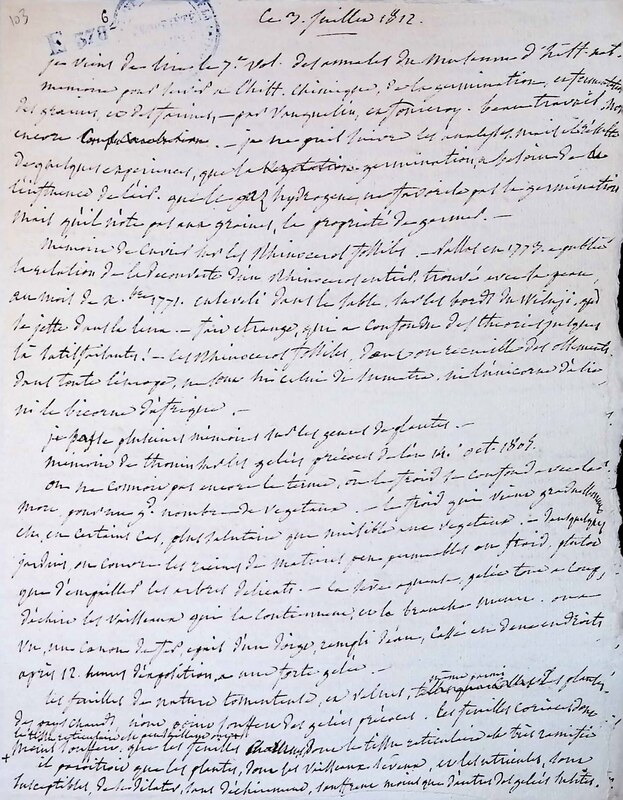 103
6
Ce 3. juillet 1812.
je viens de lire le 7.e vol. des annales du Museum d'hist. nat.
memoire pour servir à l'hist. chimique, de la germination, et fermentation
des graines, et des farines, – par Vauquelin, et fourcroy. beau travail, mais
encore . – je ne puis suivre les analyses, mais il résulte
de quelques experiences, que la vegetation germination, a besoin de
l'influence de l'air. que le gaz hydrogene, ne favorise pas la germination
mais qu'il n'ôte pas aux graines, la propriété de germer. –
Memoire de Cuvier sur les Rhinoceros fossiles. – Pallas en 1773. a publié
la relation de la découverte d'un Rhinoceros entier, trouvé avec la peau
au mois de x.bre 1771. enseveli dans le sable, sur les bords du Wiluji, qui
se jette dans le lena. – fait etrange, qui a confondu des theories jusques
là satisfaisantes! – Ces Rhinoceros fossiles, dont on recueille des ossements
dans toute l'europe, ne sont ni celui de Sumatra, ni l'unicorne de
ni le bicorne d'afrique. –
je passe plusieurs mémoires sur les genres de plantes. –
memoire de thouin sur les gelées précoces de l'an 14. oct. 1805.
on ne connoit pas encore le terme, où le froid se confond avec la
mort, pour un gd. nombre de vegetaux. – le froid qui vient graduellement
est, en certains cas, plus salutaire que nuisible aux vegetaux. – dans quelques
jardins, on couvre les racines de matieres peu permeables au froid, plutot
que d'empailler les arbres delicats. – la seve aqueuse, gelée tout a coup,
déchire les vaisseaux qui la contiennent, et la branche meurt. on a
vu, un canon de fer, epais d'un doigt, rempli d'eau, cassé en deux endroits
après 12. heures d'exposition, a une forte gelée. –
les feuilles de nature tomenteuse, et velues, les plantes
des pays chauds, n'ont point souffert des gelées précoces. Les feuilles coriaces dont
le tissu reticulaire est
moins souffert, que les feuilles dont le tissu reticulaire est très ramifié
+ il paroitroit que les plantes, dont les vaisseaux seveux, et les utricules, sont
susceptibles, de se dilater, sans déchirement, souffrent moins que d'autres des gelées subites.